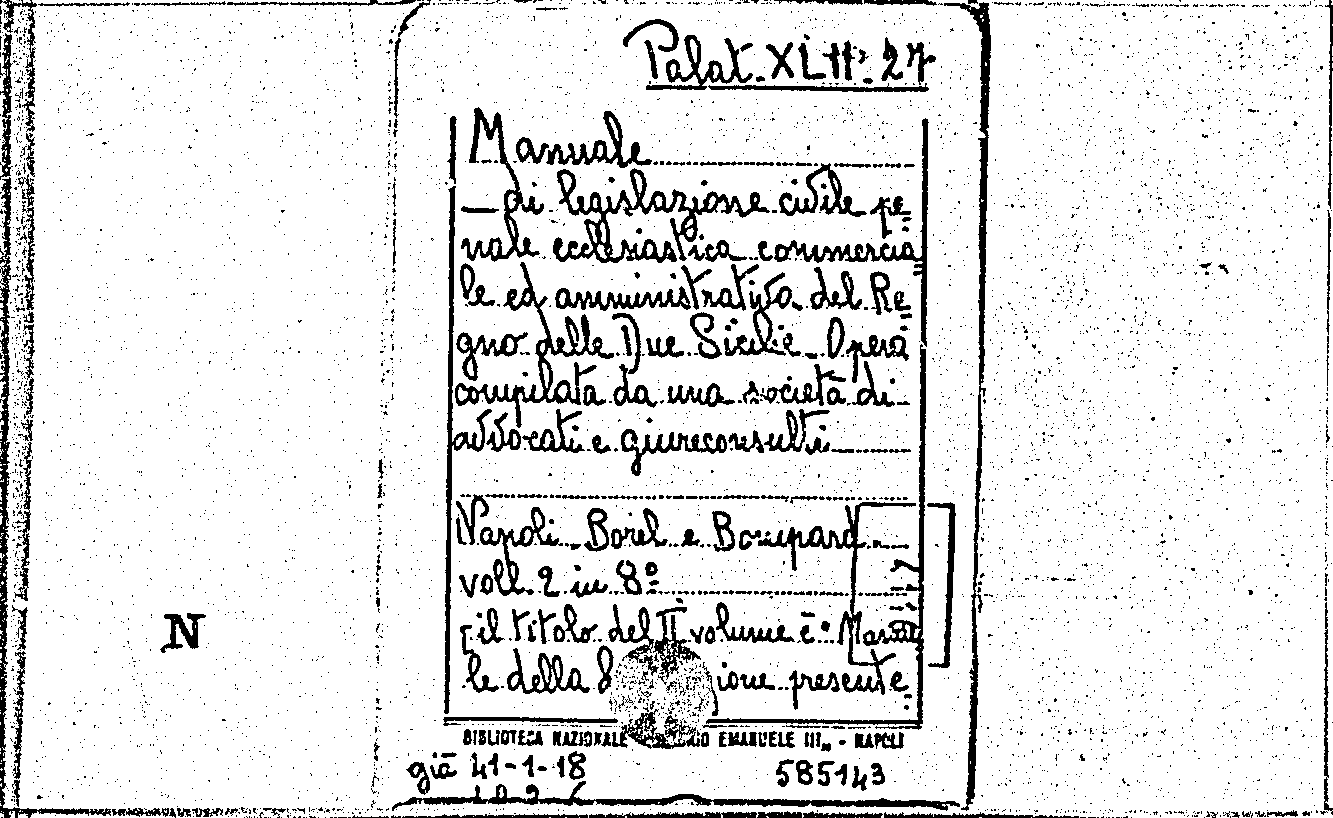 Palat. XLII. 27
Manuale
– di legislazione civile pe=
nale ecclesiastica commercia=
le ed amministrativa del Re=
gno delle Due Sicilie – Opera
compilata da una società di
avvocati e giureconsulti
Napoli – Borel e Bompard –
voll. 2 in 8º
[il titolo del II volume è: Manua
le della presente
N
BIBLIOTECA NAZIONALE EMANUELE III„ - NAPOLI
già 41-1-18
585143